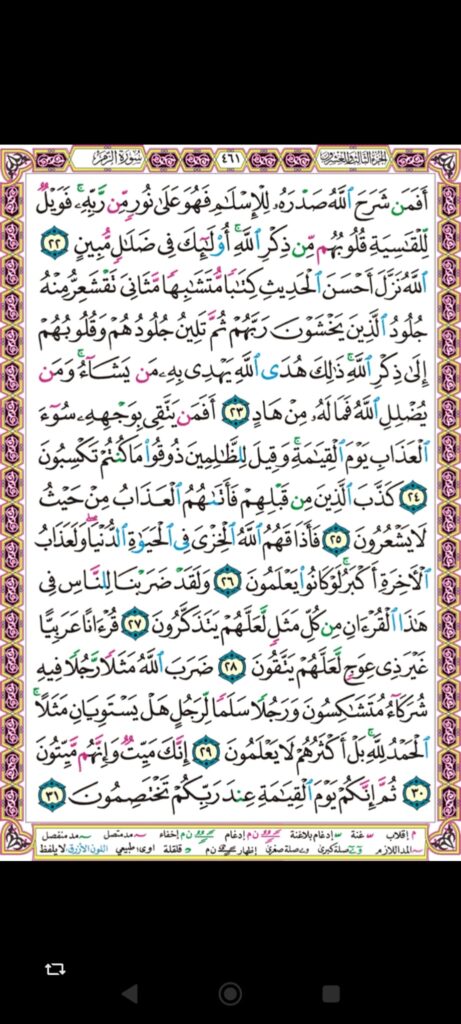 الجزء الثالث والعشرون ٤٦١ سورة الزمر
أَفَمَن شَرَحَ ٱللَّهُ صَدْرَهُۥ لِلْإِسْلَٰمِ فَهُوَ عَلَىٰ نُورٍ مِّن رَّبِّهِۦ ۚ فَوَيْلٌ
لِّلْقَٰسِيَةِ قُلُوبُهُم مِّن ذِكْرِ ٱللَّهِ ۚ أُو۟لَٰٓئِكَ فِى ضَلَٰلٍ مُّبِينٍ ٢٢
ٱللَّهُ نَزَّلَ أَحْسَنَ ٱلْحَدِيثِ كِتَٰبًا مُّتَشَٰبِهًا مَّثَانِىَ تَقْشَعِرُّ مِنْهُ
جُلُودُ ٱلَّذِينَ يَخْشَوْنَ رَبَّهُمْ ثُمَّ تَلِينُ جُلُودُهُمْ وَقُلُوبُهُمْ
إِلَىٰ ذِكْرِ ٱللَّهِ ۚ ذَٰلِكَ هُدَى ٱللَّهِ يَهْدِى بِهِۦ مَن يَشَآءُ ۚ وَمَن
يُضْلِلِ ٱللَّهُ فَمَا لَهُۥ مِنْ هَادٍ ٢٣ أَفَمَن يَتَّقِى بِوَجْهِهِۦ سُوٓءَ
ٱلْعَذَابِ يَوْمَ ٱلْقِيَٰمَةِ ۚ وَقِيلَ لِلظَّٰلِمِينَ ذُوقُوا۟ مَا كُنتُمْ تَكْسِبُونَ
٢٤ كَذَّبَ ٱلَّذِينَ مِن قَبْلِهِمْ فَأَتَىٰهُمُ ٱلْعَذَابُ مِنْ حَيْثُ
لَا يَشْعُرُونَ ٢٥ فَأَذَاقَهُمُ ٱللَّهُ ٱلْخِزْىَ فِى ٱلْحَيَوٰةِ ٱلدُّنْيَا ۖ وَلَعَذَابُ
ٱلْءَاخِرَةِ أَكْبَرُ ۚ لَوْ كَانُوا۟ يَعْلَمُونَ ٢٦ وَلَقَدْ ضَرَبْنَا لِلنَّاسِ فِى
هَٰذَا ٱلْقُرْءَانِ مِن كُلِّ مَثَلٍ لَّعَلَّهُمْ يَتَذَكَّرُونَ ٢٧ قُرْءَانًا عَرَبِيًّا
غَيْرَ ذِى عِوَجٍ لَّعَلَّهُمْ يَتَّقُونَ ٢٨ ضَرَبَ ٱللَّهُ مَثَلًا رَّجُلًا فِيهِ
شُرَكَآءُ مُتَشَٰكِسُونَ وَرَجُلًا سَلَمًا لِّرَجُلٍ هَلْ يَسْتَوِيَانِ مَثَلًا ۚ
ٱلْحَمْدُ لِلَّهِ ۚ بَلْ أَكْثَرُهُمْ لَا يَعْلَمُونَ ٢٩ إِنَّكَ مَيِّتٌ وَإِنَّهُم مَّيِّتُونَ
٣٠ ثُمَّ إِنَّكُمْ يَوْمَ ٱلْقِيَٰمَةِ عِندَ رَبِّكُمْ تَخْتَصِمُونَ ٣١
م إقلاب غنة إدغام بلاغنة ن م إدغام ن م إخفاء مد متصل مد منفصل
المد اللازم صلة كبرى و ے صلة صغرى إظهار ن م قلقلة اوى: طبيعي اللون الأزرق: لا يلفظ